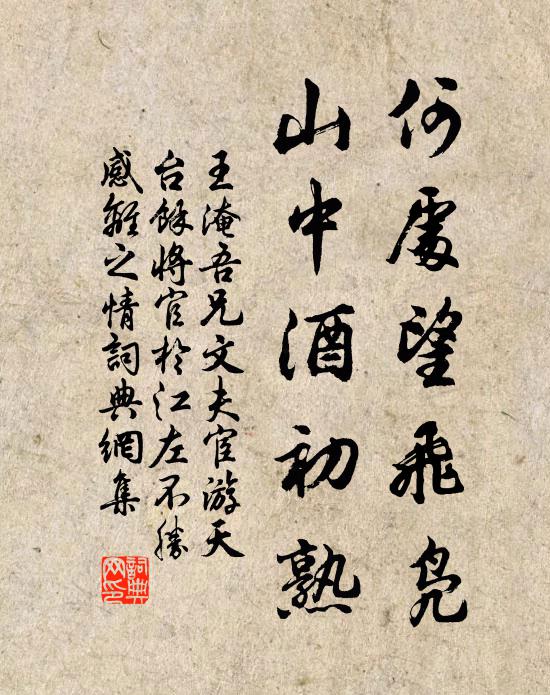 何處望飛鳧
山中酒初熟
王淹吾兄文夫宦游天
台餘將官於江左不勝
感離之情詞典網集
詞典
网印